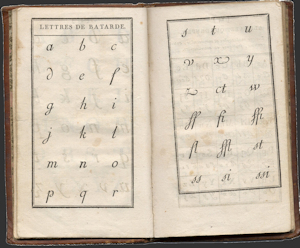 LETTRES DE BATARDE.
a b c
d e f
g h i
j k l
m n o
p q r
s t u
v x y
z ct w
ff fi ffi
fl ffl st
ss si ssi